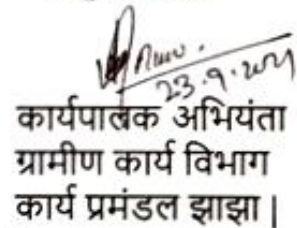 23.9.2021
कार्यपालक अभियंता
ग्रामीण कार्य विभाग
कार्य प्रमंडल झाझा |